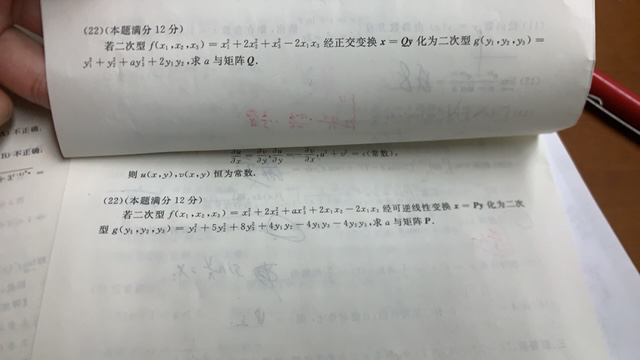 (22)(本题满分 12 分)
若二次型 f(x₁,x₂,x₃)=x₁²+2x₂²+x₃²-2x₁x₃ 经正交变换 x=Qy 化为二次型 g(y₁,y₂,y₃)=
y₁²+y₂²+ay₃²+2y₁y₂,求 a 与矩阵 Q.
A) 不正确.
B) 不正确.
则 u(x,y),v(x,y) 恒为常数.
(22)(本题满分 12 分)
若二次型 f(x₁,x₂,x₃)=x₁²+2x₂²+ax₃²+2x₁x₂-2x₁x₃ 经可逆线性变换 x=Py 化为二次
型 g(y₁,y₂,y₃)=y₁²+5y₂²+8y₃²+4y₁y₂-4y₁y₃-4y₂y₃,求 a 与矩阵 P.